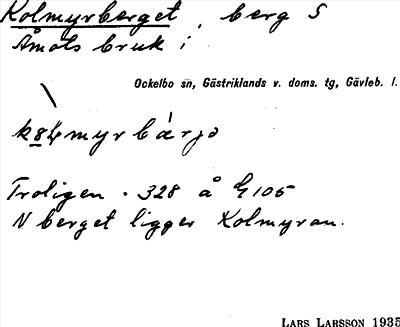 Kolmyrberget, berg S
Åmots bruk i
Ockelbo sn, Gästriklands v. doms. tg, Gävleb. l.
Troligen · 328 å G 105
N berget ligger Kolmyran.
LARS LARSSON 1935